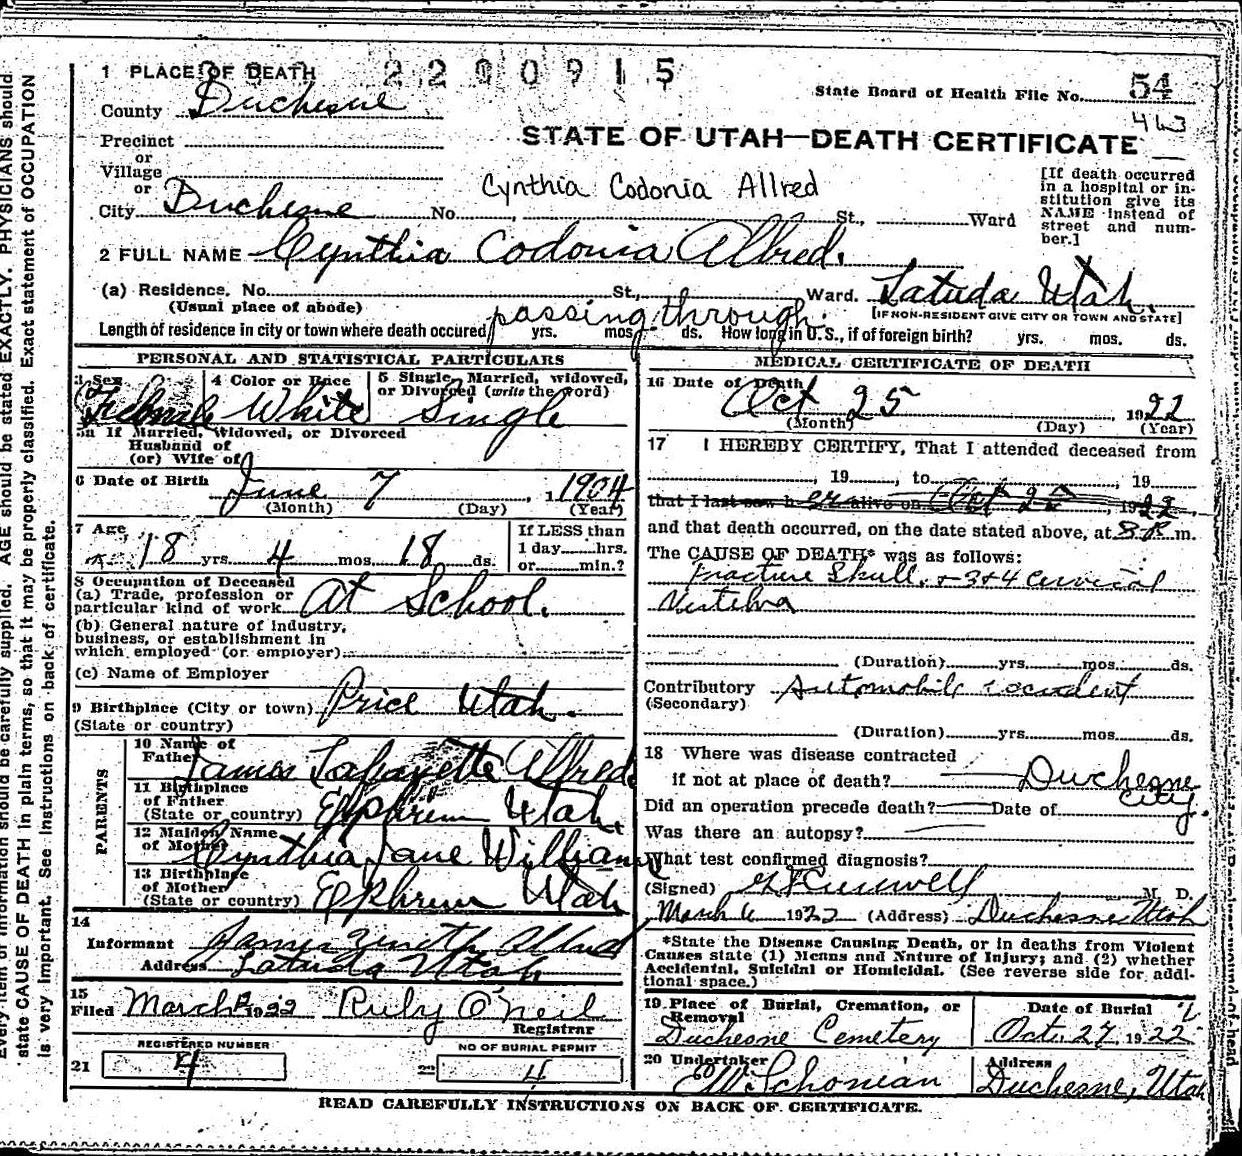 1 PLACE OF DEATH
2200915
County Duchesne
State Board of Health File No. 54
463
Precinct
or
Village
or
STATE OF UTAH—DEATH CERTIFICATE
Cynthia Codonia Allred
City Duchesne No. , St., Ward
[If death occurred
in a hospital or in-
stitution give its
NAME instead of
street and num-
ber.]
2 FULL NAME Cynthia Codonia Allred.
(a) Residence. No. St., Ward. Latuda Utah.
(Usual place of abode)
[IF NON-RESIDENT GIVE CITY OR TOWN AND STATE]
Length of residence in city or town where death occured passing through. yrs. mos. ds. How long in U.S., if of foreign birth? yrs. mos. ds.
PERSONAL AND STATISTICAL PARTICULARS
3 Sex Female
4 Color or Race White
5 Single, Married, widowed,
or Divorced (write the word)
Single
5a If Married, Widowed, or Divorced
Husband of
(or) Wife of
6 Date of Birth June 7, 1904
(Month) (Day) (Year)
7 Age
18 yrs. 4 mos. 18 ds.
If LESS than
1 day hrs.
or min.?
8 Occupation of Deceased
(a) Trade, profession or
particular kind of work At School.
(b) General nature of industry,
business, or establishment in
which employed (or employer)
(c) Name of Employer
9 Birthplace (City or town) Price Utah.
(State or country)
PARENTS
10 Name of
Father James Lafayette Allred
11 Birthplace
of Father
(State or country) Ephrim Utah.
12 Maiden Name
of Mother Cynthia Jane Williams
13 Birthplace
of Mother
(State or country) Ephrim Utah
14
Informant James Allred
Address Latuda Utah
15
Filed March 1922 Ruby O'Neil
Registrar
REGISTERED NUMBER
21 4
NO OF BURIAL PERMIT
22 4
MEDICAL CERTIFICATE OF DEATH
16 Date of Death
Oct 25, 1922
(Month) (Day) (Year)
17 I HEREBY CERTIFY, That I attended deceased from
, 19 , to , 19
that I last saw h er alive on Oct 25, 1922,
and that death occurred, on the date stated above, at 8 P. m.
The CAUSE OF DEATH* was as follows:
Fracture Skull. + 3+4 Cervical
Vertebra
(Duration) yrs. mos. ds.
Contributory Automobile accident
(Secondary)
(Duration) yrs. mos. ds.
18 Where was disease contracted
if not at place of death? Duchesne
City.
Did an operation precede death? Date of
Was there an autopsy?
What test confirmed diagnosis?
(Signed) M. D.
March 6 1922 (Address) Duchesne Utah
*State the Disease Causing Death, or in deaths from Violent
Causes state (1) Means and Nature of Injury; and (2) whether
Accidental, Suicidal or Homicidal. (See reverse side for addi-
tional space.)
19 Place of Burial, Cremation, or
Removal
Duchesne Cemetery
Date of Burial
Oct. 27, 1922
20 Undertaker
Address
Duchesne, Utah
READ CAREFULLY INSTRUCTIONS ON BACK OF CERTIFICATE.
Every item of information should be carefully supplied. AGE should be stated EXACTLY. PHYSICIANS should
state CAUSE OF DEATH in plain terms, so that it may be properly classified. Exact statement of OCCUPATION
is very important. See instructions on back of certificate.